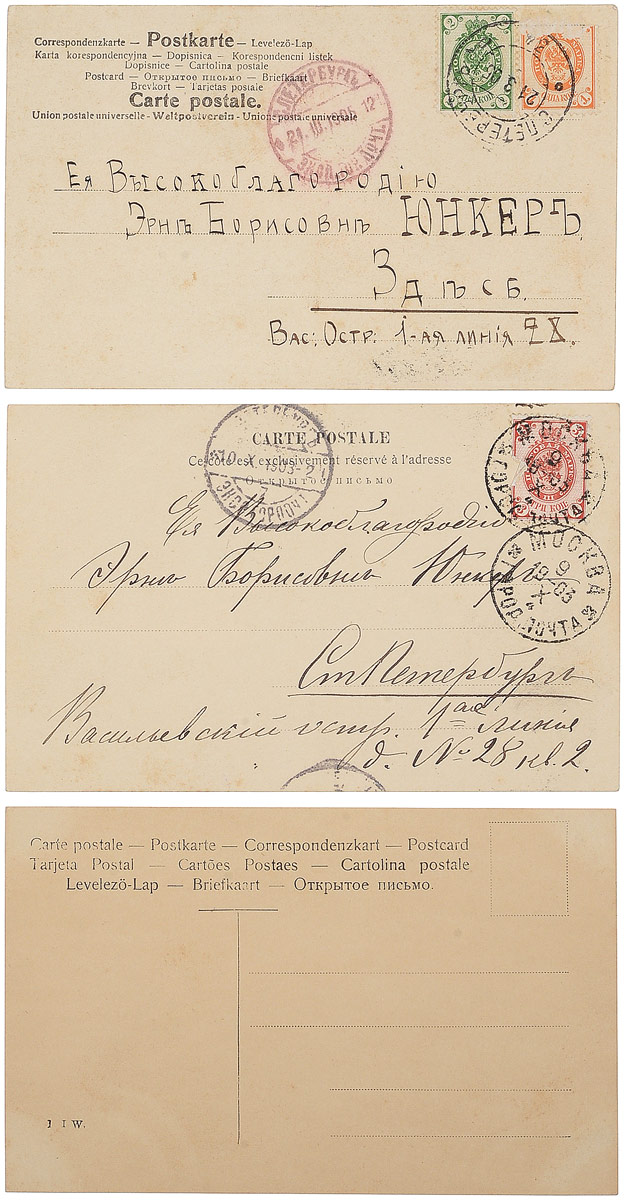 Correspondenzkarte — Postkarte — Levelező-Lap
Karta korespondencyjna — Dopisnica — Korespondencni listek
Dopisnice — Cartolina postale
Postcard — Открытое письмо — Briefkaart
Brevkort — Tarjetas postale
Carte postale.
Union postale universelle — Weltpostverein — Unione postale universale
Ея Высокоблагородію
Эрнѣ Борисовнѣ ЮНКЕРЪ
Здѣсь.
Вас: Остр: 1-ая линія 28.
CARTE POSTALE
Ce côté est exclusivement réservé à l'adresse
Открытое письмо
МОСКВА
9
X
03
ПОЧТА
Ея Высокоблагородію
Эрнѣ Борисовнѣ Юнкеръ
МОСКВА
9
X
19 03
ГОРОД. ПОЧТА
СтПетербургъ
Васильевскій остр. 1ая линія
д. № 28 кв. 2.
Carte postale — Postkarte — Correspondenzkart — Postcard
Tarjeta Postal — Cartões Postaes — Cartolina postale
Levelező-Lap — Briefkaart — Открытое письмо.
J I W.